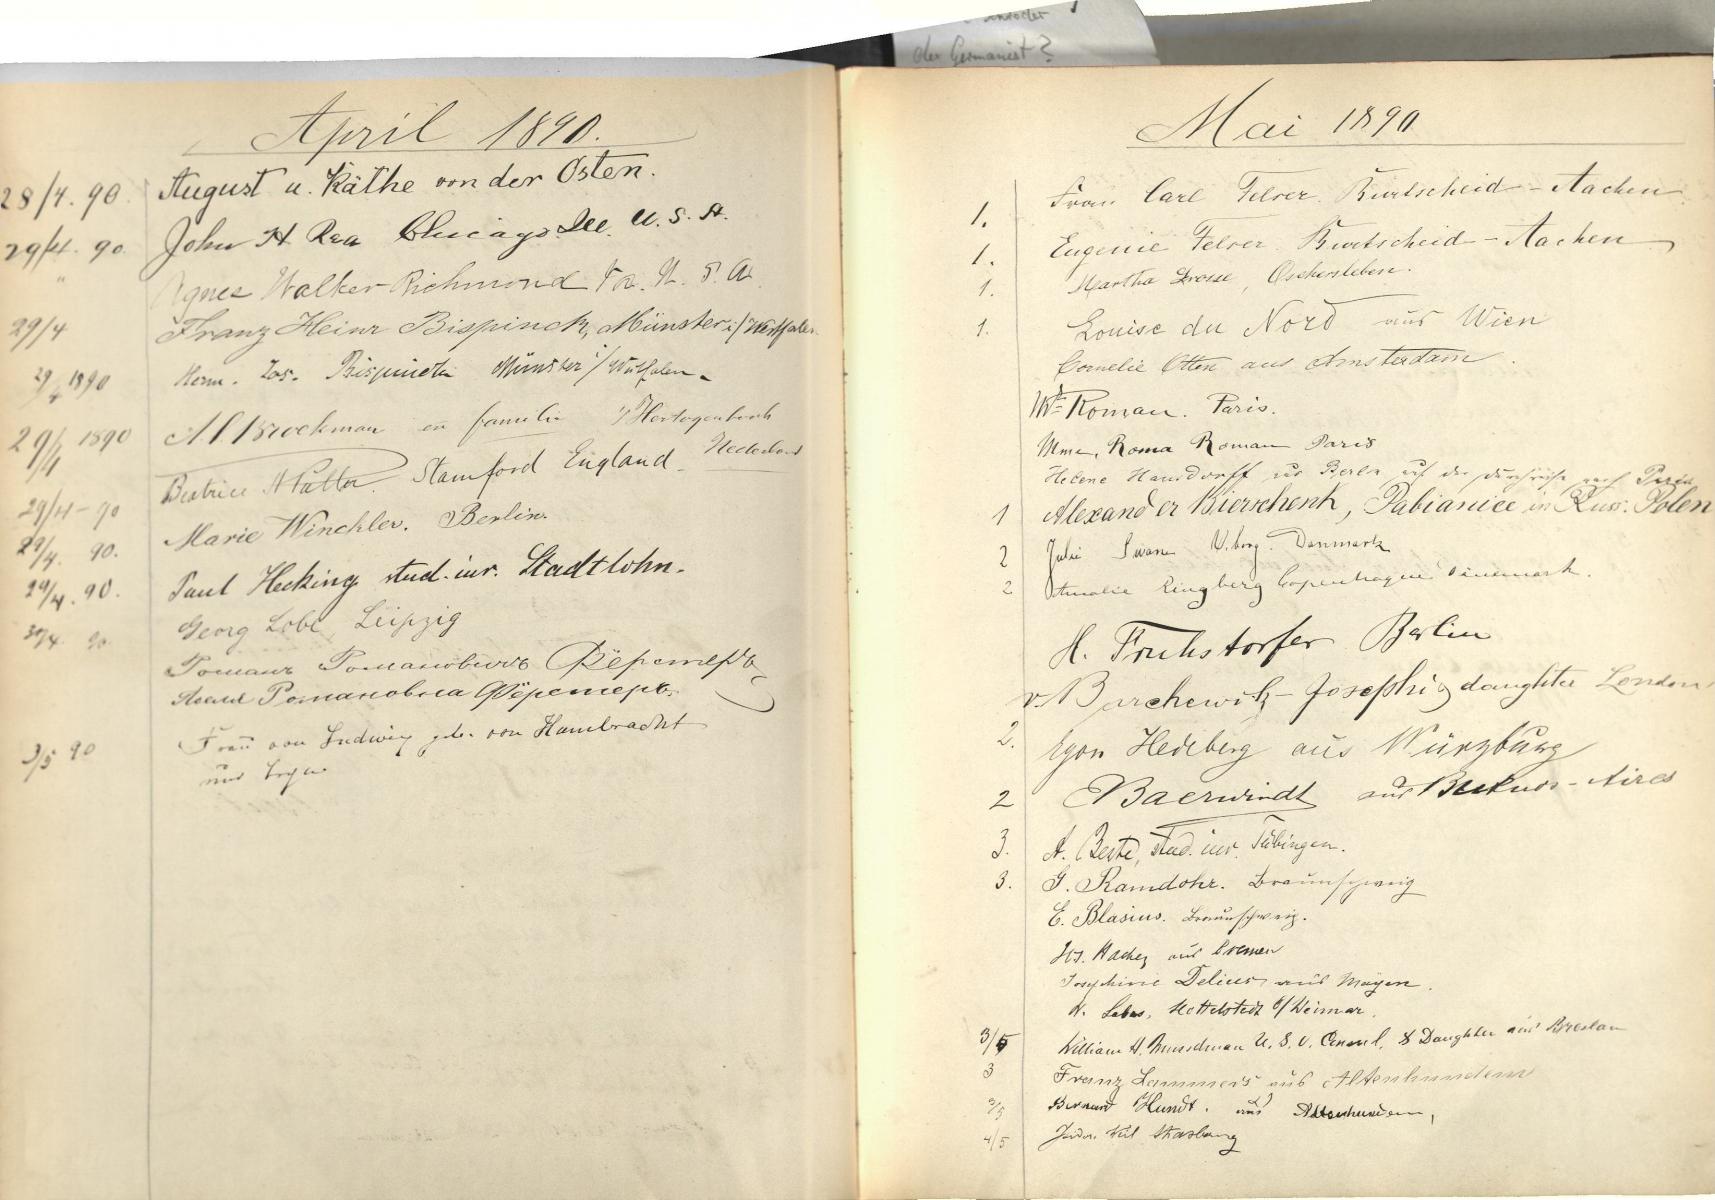 der Germanist?
April 1890.
28/4. 90. August u. Käthe von der Osten.
29/4. 90. John H Rea Chicago. Ill. U. S. A.
" Agnes Walker Richmond Va. U. S. A.
29/4 Franz Heinr Bispinck, Münster i/Westfalen.
29/4 1890 Herm. Jos. Bispinck Münster i/Westfalen.
29/4 1890 Brockman en familie 's Hertogenbosch
Nederland
Beatrice Stamford England.
29/4 - 90 Marie Winckler. Berlin.
29/4. 90. Paul Hecking stud. iur. Stadtlohn.
29/4. 90. Georg Lobe Leipzig
30/4. 90. Романъ Романовичъ Фёрстеръ
Романовна Фёрстеръ.
3/5 90 Frau von Ludwig geb. von Hambracht
und
Mai 1890
1. Frau Carl Felser Burtscheid - Aachen.
1. Eugenie Felser Burtscheid - Aachen
1. Martha Drosse, Oschersleben.
1. Louise du Nord aus Wien
Cornelie Otten aus Amsterdam.
Roman. Paris.
Mme. Roma Roman Paris
Helene Hansdorff aus Berlin auf der Durchreise nach Paris
1 Alexander Bierschenk, Pabianice in Russ. Polen
2 Julie Swane Viborg. Danmark
2 Amalie Ringberg Copenhague Dänemark.
H. Fruhstorfer Berlin
v. Barchewitz - Josephi & daughter London
2. Egon Hedeberg aus Würzburg
2 Baerwindt aus Buenos-Aires
3. A. Beste, stud. iur. Tübingen.
3. G. Ramdohr. Braunschweig
E. Blasius. Braunschweig.
Jos. Hachez aus Bremen
Josephine Delius aus Mayen.
Hottelstedt b/Weimar.
3/5 William H. U. S. V. Consul. & Daughter aus Breslau
3 Franz Lammers aus Altenhundem
3/5 Bernard Hundt. aus Altenhundem,
4/5 Strasburg